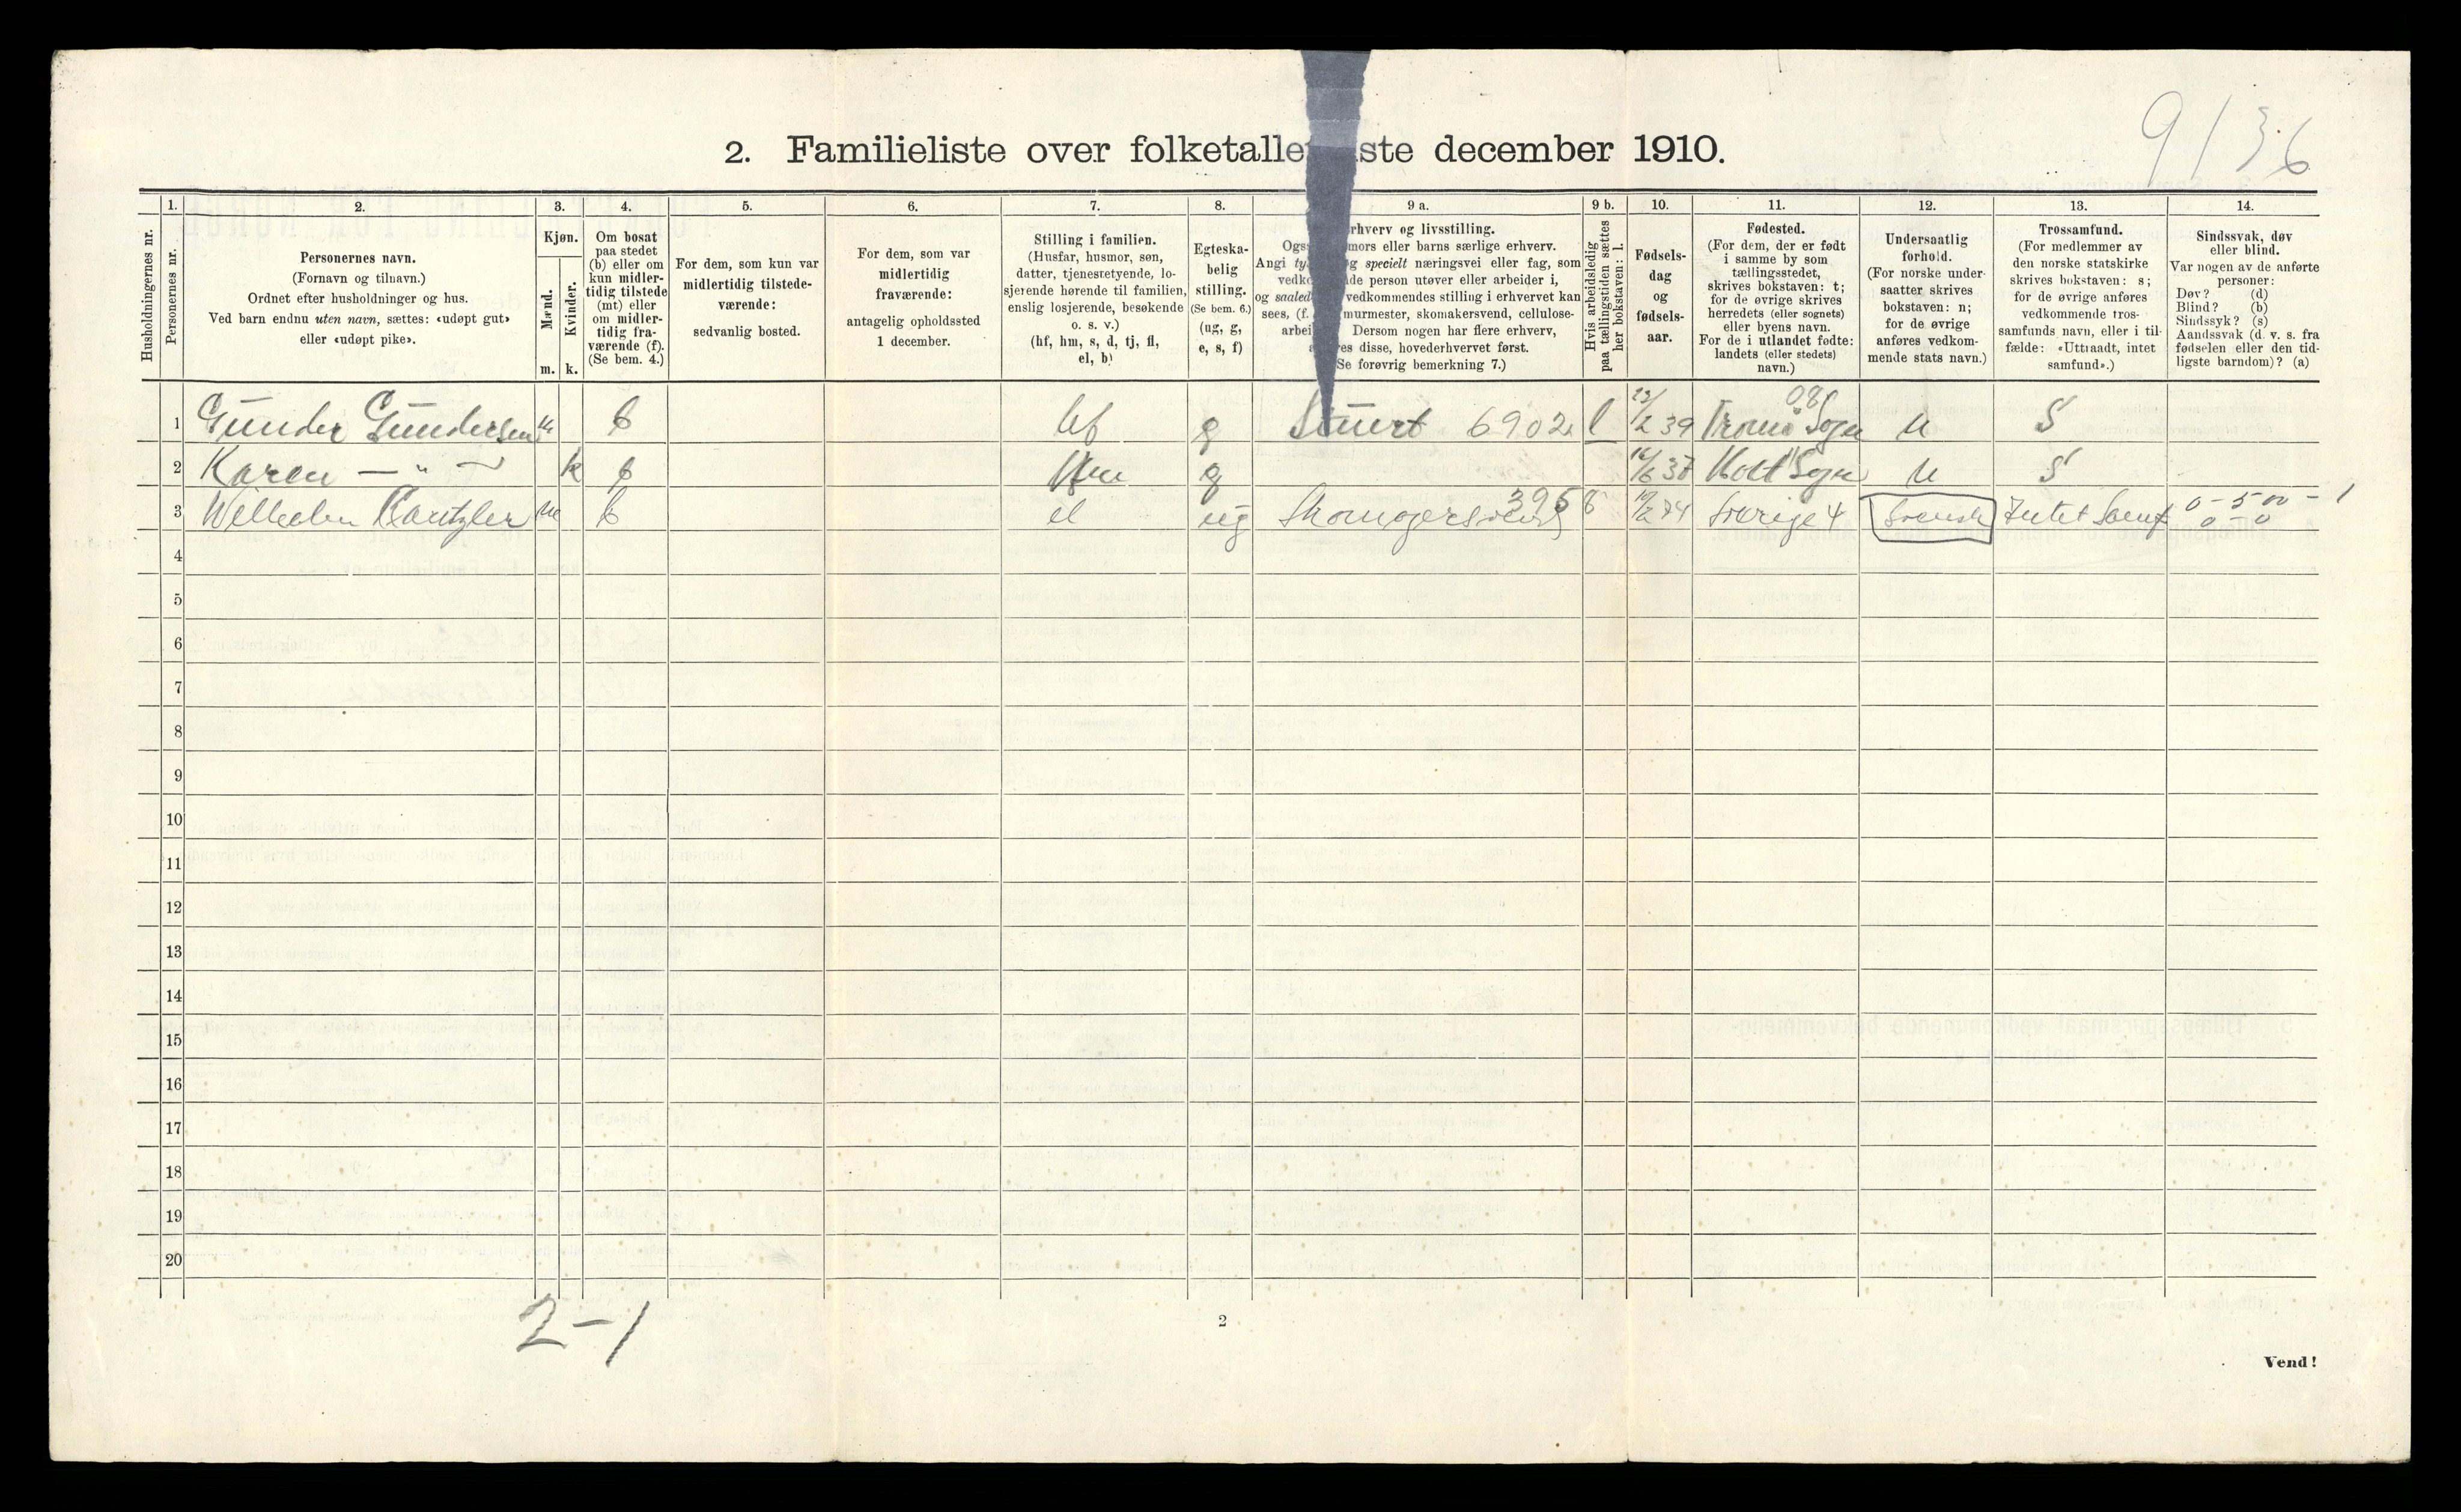 9136
2. Familieliste over folketallet 1ste december 1910.
1. 2. 3. 4. 5. 6. 7. 8. 9 a. 9 b. 10. 11. 12. 13. 14.
Husholdningernes nr.
Personernes nr.
Personernes navn.
(Fornavn og tilnavn.)
Ordnet efter husholdninger og hus.
Ved barn endnu uten navn, sættes: «udøpt gut»
eller «udøpt pike».
Kjøn.
Mænd.
Kvinder.
m. k.
Om bosat
paa stedet
(b) eller om
kun midler-
tidig tilstede
(mt) eller
om midler-
tidig fra-
værende (f).
(Se bem. 4.)
For dem, som kun var
midlertidig tilstede-
værende:
sedvanlig bosted.
For dem, som var
midlertidig
fraværende:
antagelig opholdssted
1 december.
Stilling i familien.
(Husfar, husmor, søn,
datter, tjenestetyende, lo-
sjerende hørende til familien,
enslig losjerende, besøkende
o. s. v.)
(hf, hm, s, d, tj, fl,
el, b)
Egteska-
belig
stilling.
(Se bem. 6.)
(ug, g,
e, s, f)
rhverv og livsstilling.
Ogs mors eller barns særlige erhverv.
Angi ty g specielt næringsvei eller fag, som
vedko de person utøver eller arbeider i,
og saaled vedkommendes stilling i erhvervet kan
sees, (f. murmester, skomakersvend, cellulose-
arbei Dersom nogen har flere erhverv,
a es disse, hovederhvervet først.
Se forøvrig bemerkning 7.)
Hvis arbeidsledig
paa tællingstiden sættes
her bokstaven: l.
Fødsels-
dag
og
fødsels-
aar.
Fødested.
(For dem, der er født
i samme by som
tællingsstedet,
skrives bokstaven: t;
for de øvrige skrives
herredets (eller sognets)
eller byens navn.
For de i utlandet fødte:
landets (eller stedets)
navn.)
Undersaatlig
forhold.
(For norske under-
saatter skrives
bokstaven: n;
for de øvrige
anføres vedkom-
mende stats navn.)
Trossamfund.
(For medlemmer av
den norske statskirke
skrives bokstaven: s;
for de øvrige anføres
vedkommende tros-
samfunds navn, eller i til-
fælde: «Uttraadt, intet
samfund».)
Sindssvak, døv
eller blind.
Var nogen av de anførte
personer:
Døv? (d)
Blind? (b)
Sindssyk? (s)
Aandssvak (d. v. s. fra
fødselen eller den tid-
ligste barndom)? (a)
1 Gunder Gundersen m b hf g Stuert 6902 l 2 39 Tromø Sogn n S
2 Karen — " — k b hm g Holt Sogn n S
3 Wilhelm m b el ug Skomagersvend 3958 Sverige 4 Svensk Intet Samf
4
5
6
7
8
9
10
11
12
13
14
15
16
17
18
19
20
2-1
2
Vend!